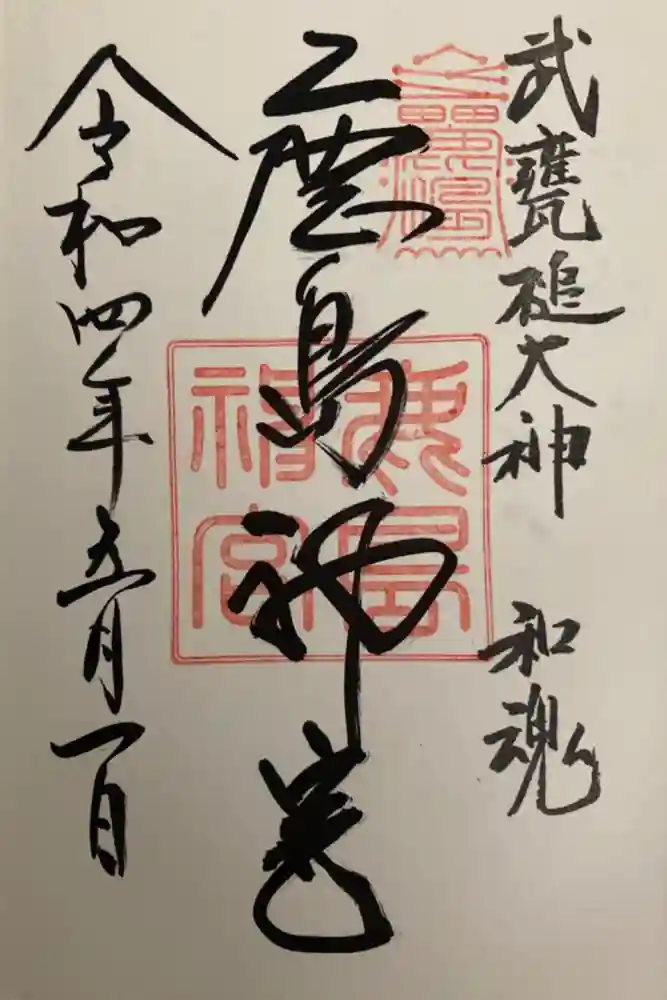 武甕槌大神 和魂
鹿島神宮
鹿島
神宮
令和四年五月一日